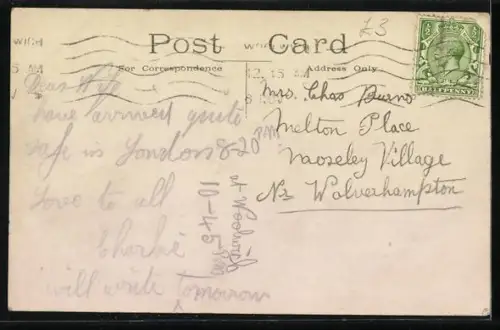 £3
WICH
Post Card
For Correspondence
Address Only
12.15 AM
HALFPENNY
Dear Wife
have arrived quite
safe in London 8-20 PM
Love to all
Charlie
will write tomorrow
10-45
at Woolwich
Mrs. Chas Burns
Melton Place
Moseley Village
Nr Wolverhampton